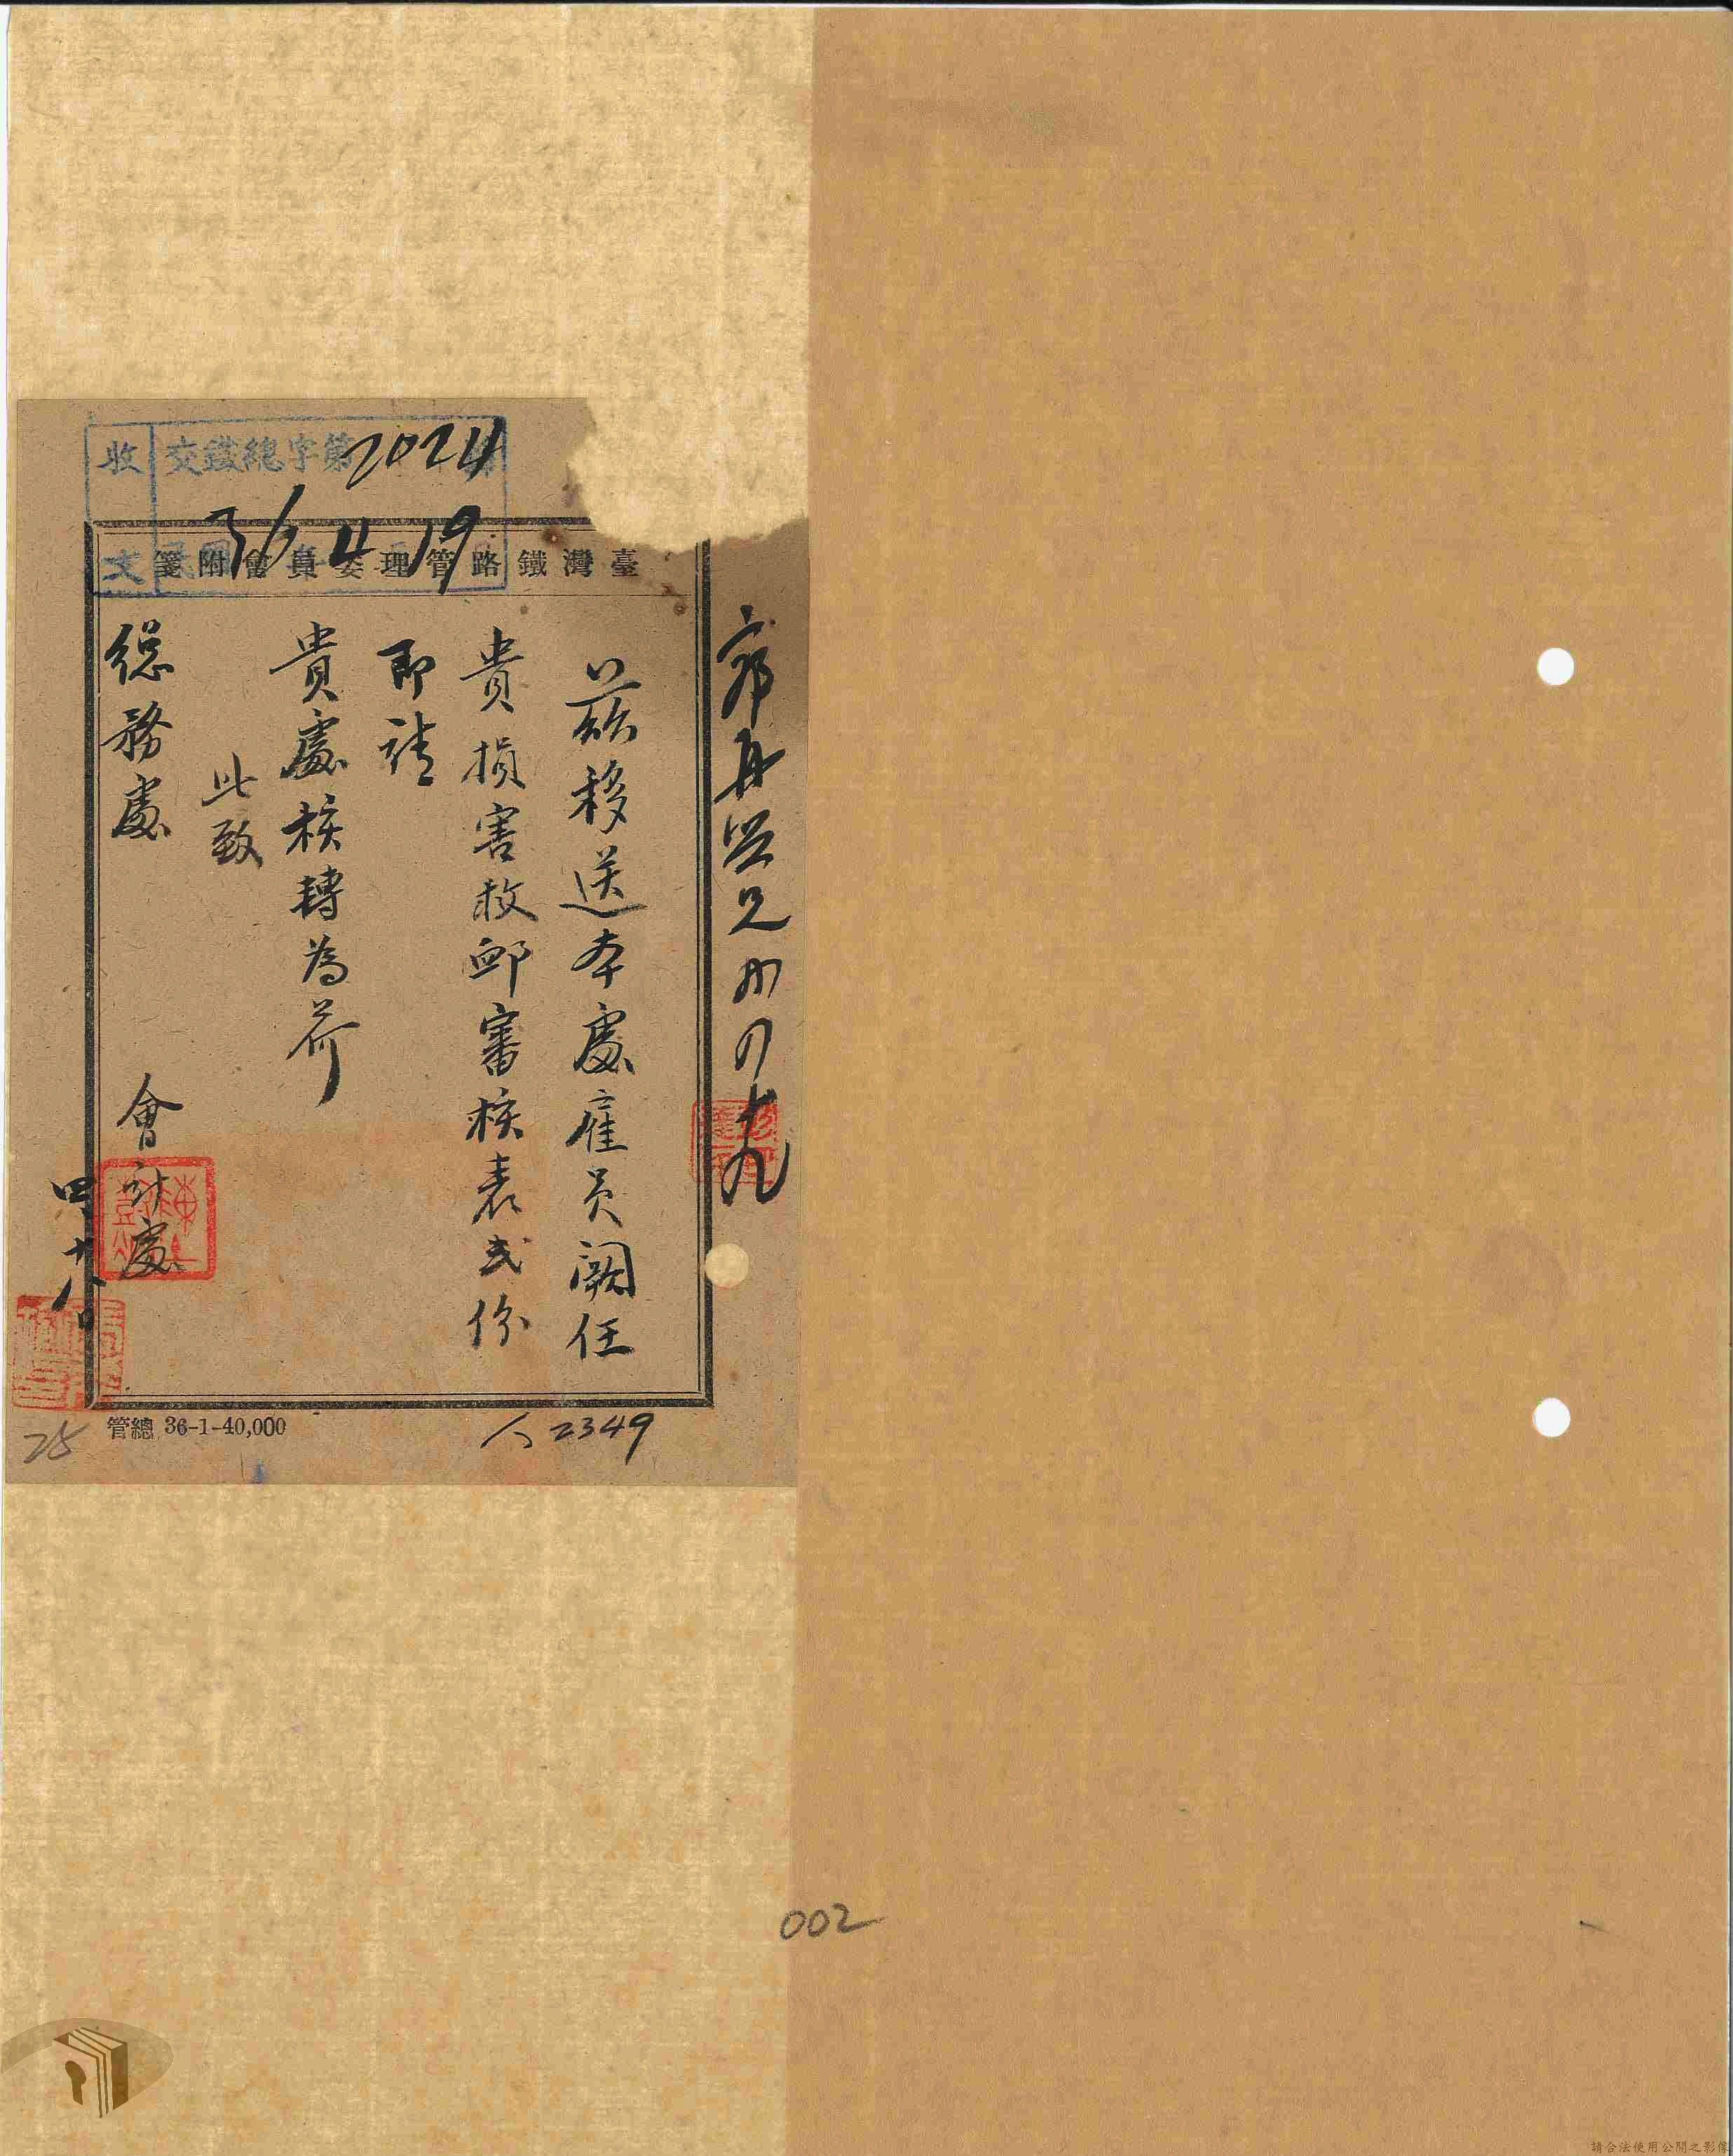 收文
交鐵總字第2024號
36 4 19
臺灣鐵路管理委員會附箋
茲移送本處雇員闕任
貴損害救卹審核表弍份
即請
貴處核轉為荷
此致
總務處
會計處
四、十八日
管總 36-1-40,000
人2349
25
002
請合法使用公開之影像